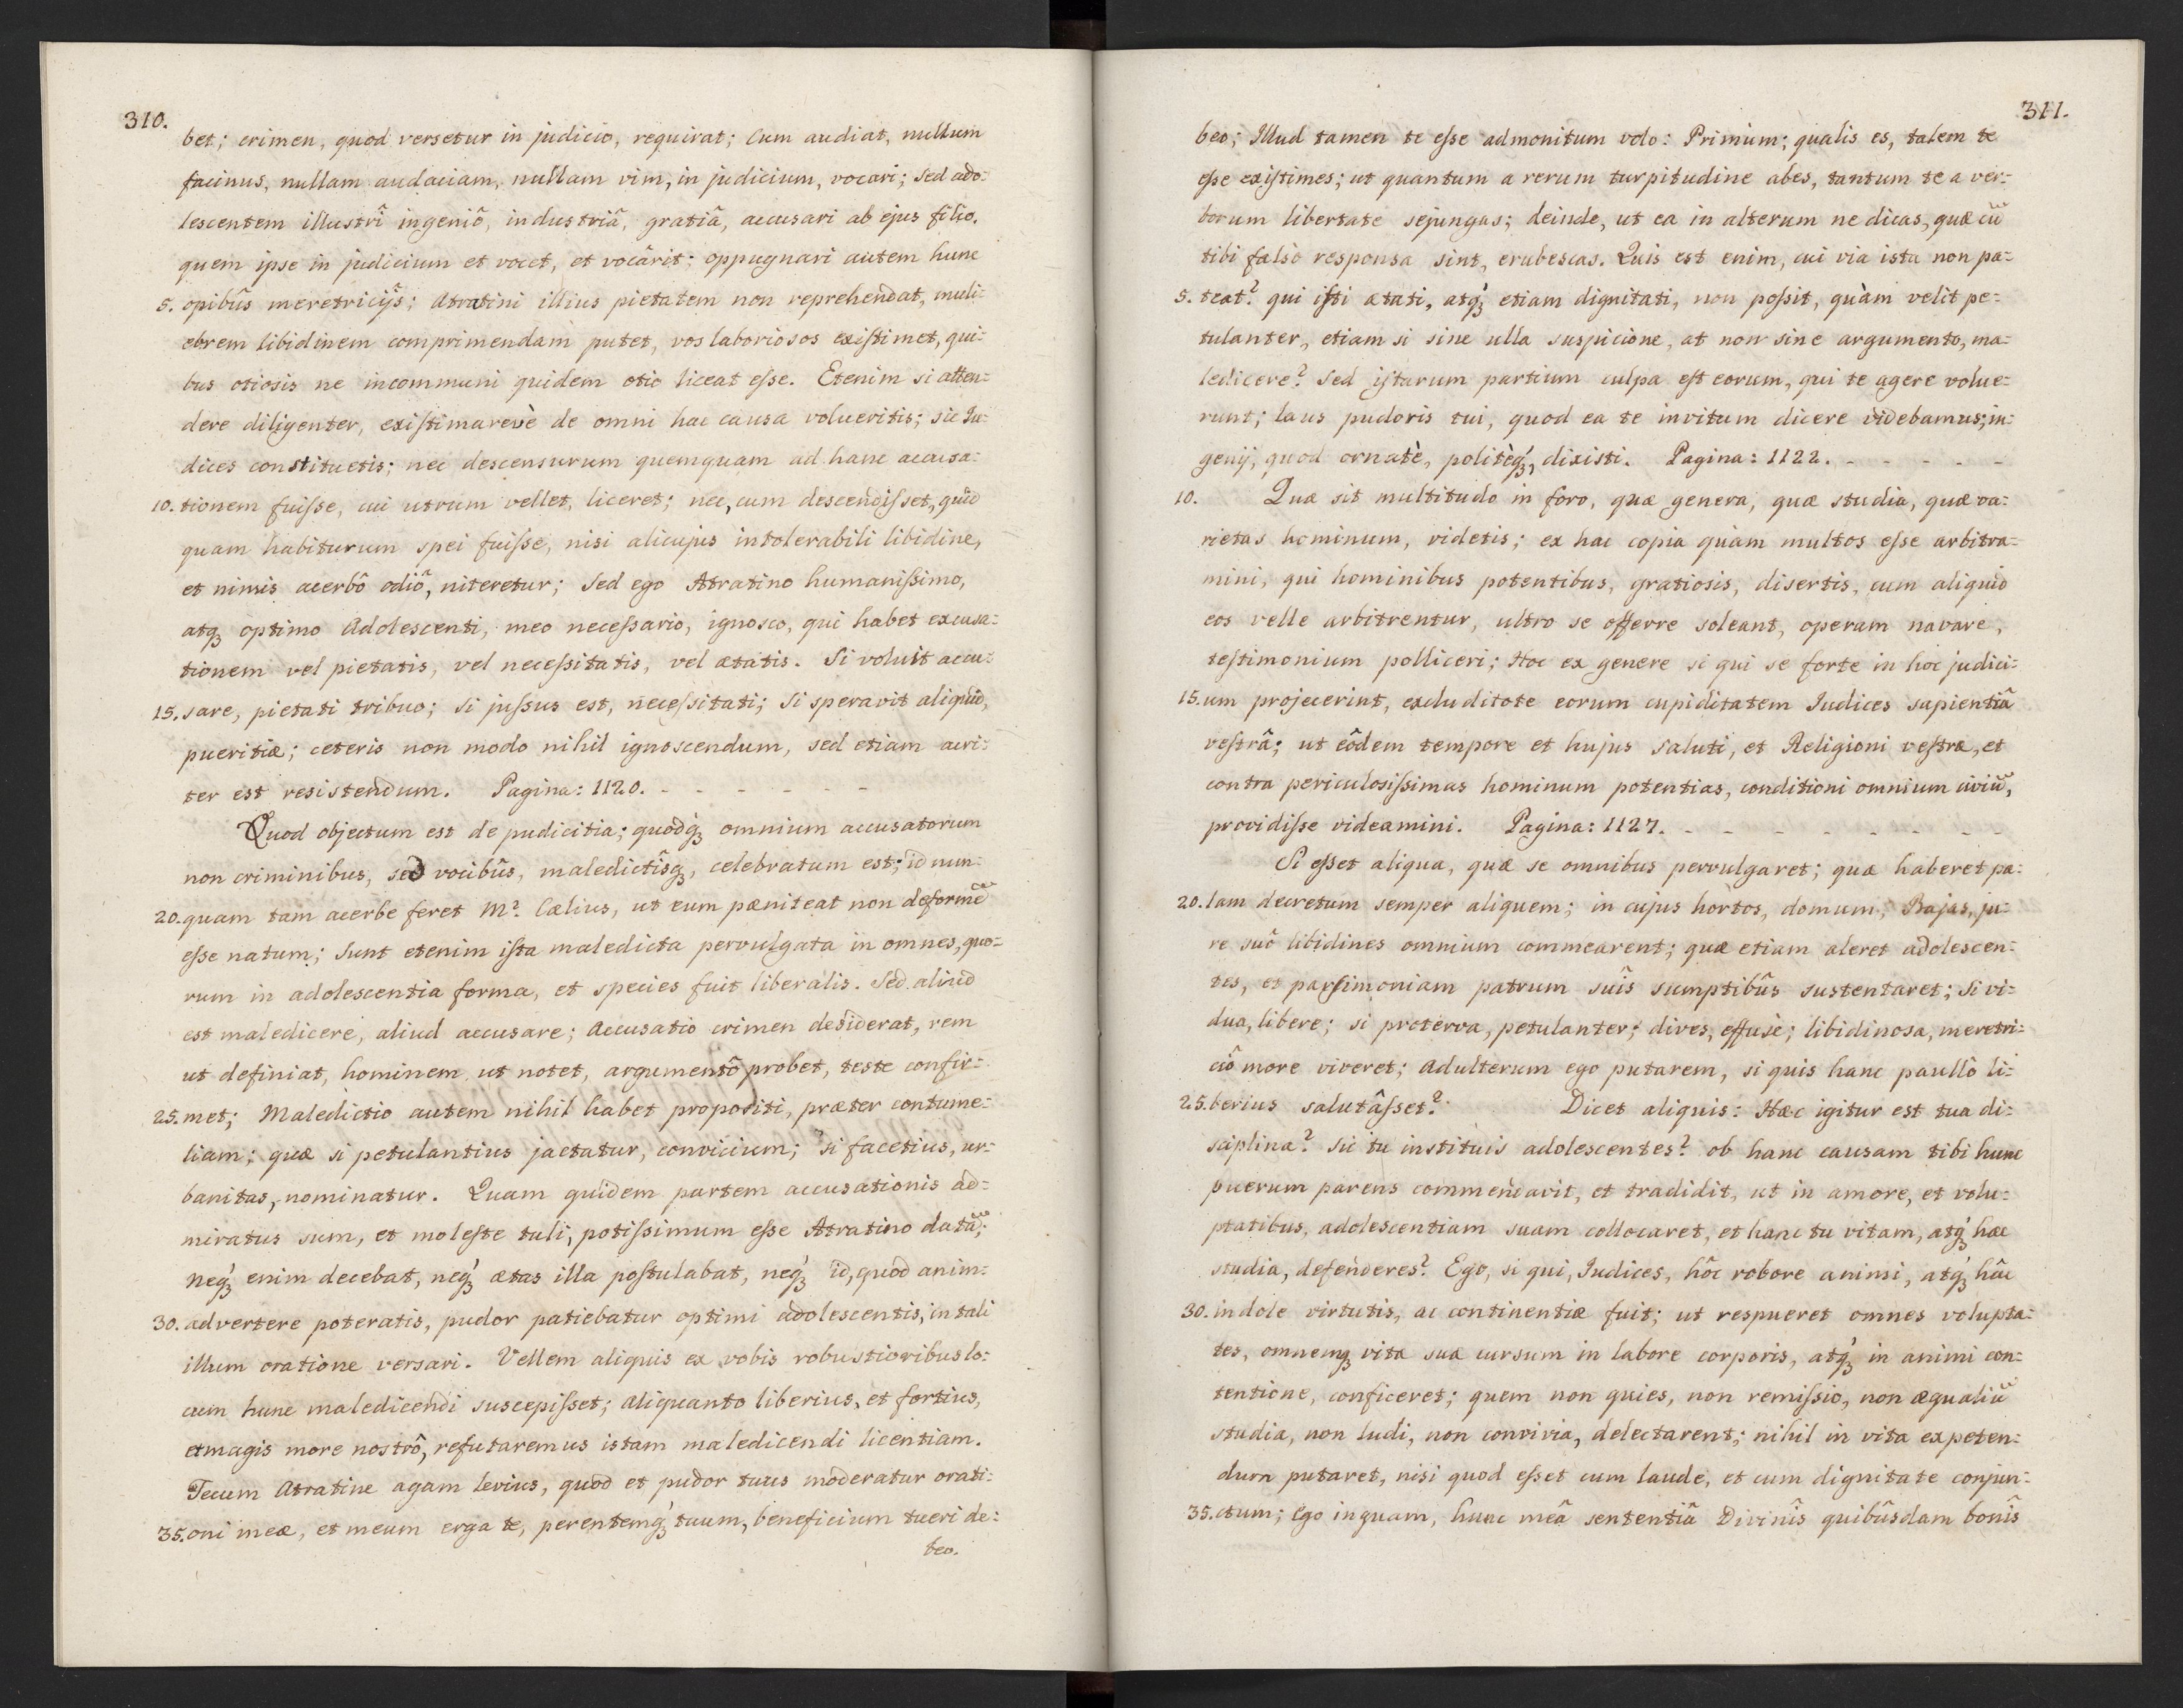 310.
bet; crimen, quod versetur in judicio, requirat; Cum audiat, nullum
facinus, nullam audaciam, nullam vim, in judicium, vocari; sed ado:
lescentem illustrî ingeniô, industriâ, gratiâ, accusari ab ejus filio,
quem ipse in judicium et vocet, et vocârit; oppugnari autem hunc
5. opibûs meretricijs; Atratini illius pietatem non reprehendat, muli:
ebrem libidinem comprimendam putet, vos laboriosos existimet, qui:
bus otiosis ne in communi quidem otio liceat esse. Etenim si atten:
dere diligenter, existimarevè de omni hac causa volueritis; sic Iu:
dices constituetis; nec descensurum quemquam ad hanc accusa:
10. tionem fuisse, cui utrum vellet, liceret; nec, cum descendisset, quid
quam habiturum spei fuisse, nisi alicujus intolerabili libidine,
et nimis acerbô odiô, niteretur; Sed ego Atratino humanissimo,
atqꝫ optimo Adolescenti, meo necessario, ignosco, qui habet excusa:
tionem vel pietatis, vel necessitatis, vel ætatis. Si voluit accu:
15. sare, pietati tribuo; si jussus est, necessitati; Si speravit aliquid,
pueritiæ; ceteris non modo nihil ignoscendum, sed etiam acri:
ter est resistendum. Pagina: 1120. - - - - - -
Quod objectum est de pudicitia; quodqꝫ omnium accusatorum
non criminibus, sed vocibûs, maledictîsqꝫ, celebratum est; id nun:
20. quam tam acerbe feret M? Cælius, ut eum pæniteat non deformē
esse natum; Sunt etenim ista maledicta pervulgata in omnes, quo:
rum in adolescentia forma, et species fuit liberalis. Sed aliud
est maledicere, aliud accusare; Accusatio crimen desiderat, rem
ut definiat, hominem ut notet, argumentô probet, teste confir:
25. met; Maledictio autem nihil habet propositi, præter contume:
liam; quæ si petulantius jactatur, convicium; si facetius, ur:
banitas, nominatur. Quam quidem partem accusationis ad:
miratus sum, et moleste tuli, potissimum esse Atratino datā;
Neqꝫ enim decebat, neqꝫ ætas illa postulabat, neqꝫ id, quod anim:
30. advertere poteratis, pudor patiebatur optimi adolescentis, in tali
illum oratione versari. Vellem aliquis ex vobis robustioribus lo:
cum hunc maledicendi suscepisset; aliquanto liberius, et fortius,
et magis more nostrô, refutaremus istam maledicendi licentiam.
Tecum Atratine agam levius, quod et pudor tuus moderatur orati:
35. oni meæ, et meum erga te, perentemqꝫ tuum, beneficium tueri de:
beo.
311.
beo; Illud tamen te esse admonitum volo: Primùm; qualis es, talem te
esse existimes; ut quantum a rerum turpitudine abes, tantum te a ver:
borum libertate sejungas; deinde, ut ea in alterum ne dicas, quæ cū
tibi falsò responsa sint, erubescas. Quis est enim, cui via ista non pa:
5. teat? qui isti ætati, atqꝫ etiam dignitati, non possit, quàm velit pe:
tulanter, etiam si sine ulla suspicione, at non sine argumento, ma:
ledicere? Sed istarum partium culpa est eorum, qui te agere volue:
runt; laus pudoris tui, quod ea te invitum dicere videbamus; in:
genij, quod ornatè, politèqꝫ, dixisti. Pagina: 1122. - - - - -
10. Quæ sit multitudo in foro, quæ genera, quæ studia, quæ va:
rietas hominum, videtis; ex hac copia quàm multos esse arbitra:
mini, qui hominibus potentibus, gratiosis, disertis, cum aliquid
eos velle arbitrentur, ultro se offerre soleant, operam navare,
testimonium polliceri; Hoc ex genere si qui se forte in hoc judici:
15. um projecerint, excluditote eorum cupiditatem Iudices sapientiâ
vestrâ; ut eôdem tempore et hujus saluti, et Religioni vestræ, et
contra periculosissimas hominum potentias, conditioni omnium civiū,
providisse videamini. Pagina: 1127. - - - - - - - -
Si esset aliqua, quæ se omnibus pervulgaret; quæ haberet pa:
20. lam decretum semper aliquem; in cujus hortos, domum, Bajas, ju:
re suô libidines omnium commearent; quæ etiam aleret adolescen:
tes, et parsimoniam patrum suîs sumptibûs sustentaret; si vi:
dua, libere; si proterva, petulanter; dives, effusè; libidinosa, meretri:
ciô more viveret; Adulterum ego putarem, si quis hanc paullô li:
25. berius salutâsset? Dicet aliquis: Hæc igitur est tua di:
sciplina? sic tu instituis adolescentes? ob hanc causam tibi hunc
puerum parens commendavit, et tradidit, ut in amore, et volu:
ptatibus, adolescentiam suam collocaret, et hanc tu vitam, atqꝫ hæc
studia, defenderes? Ego, si qui, Iudices, hôc robore animi, atqꝫ hâc
30. indole virtutis, ac continentiæ fuit; ut respueret omnes volupta:
tes, omnemqꝫ vitæ suæ cursum in labore corporis, atqꝫ in animi con:
tentione, conficeret; quem non quies, non remissio, non æqualiū
studia, non ludi, non convivia, delectarent; nihil in vita expeten:
dum putaret, nisi quod esset cum laude, et cum dignitate conjun:
35. ctum; Ego inquam, hunc meâ sententiâ Divinîs quibûsdam bonîs